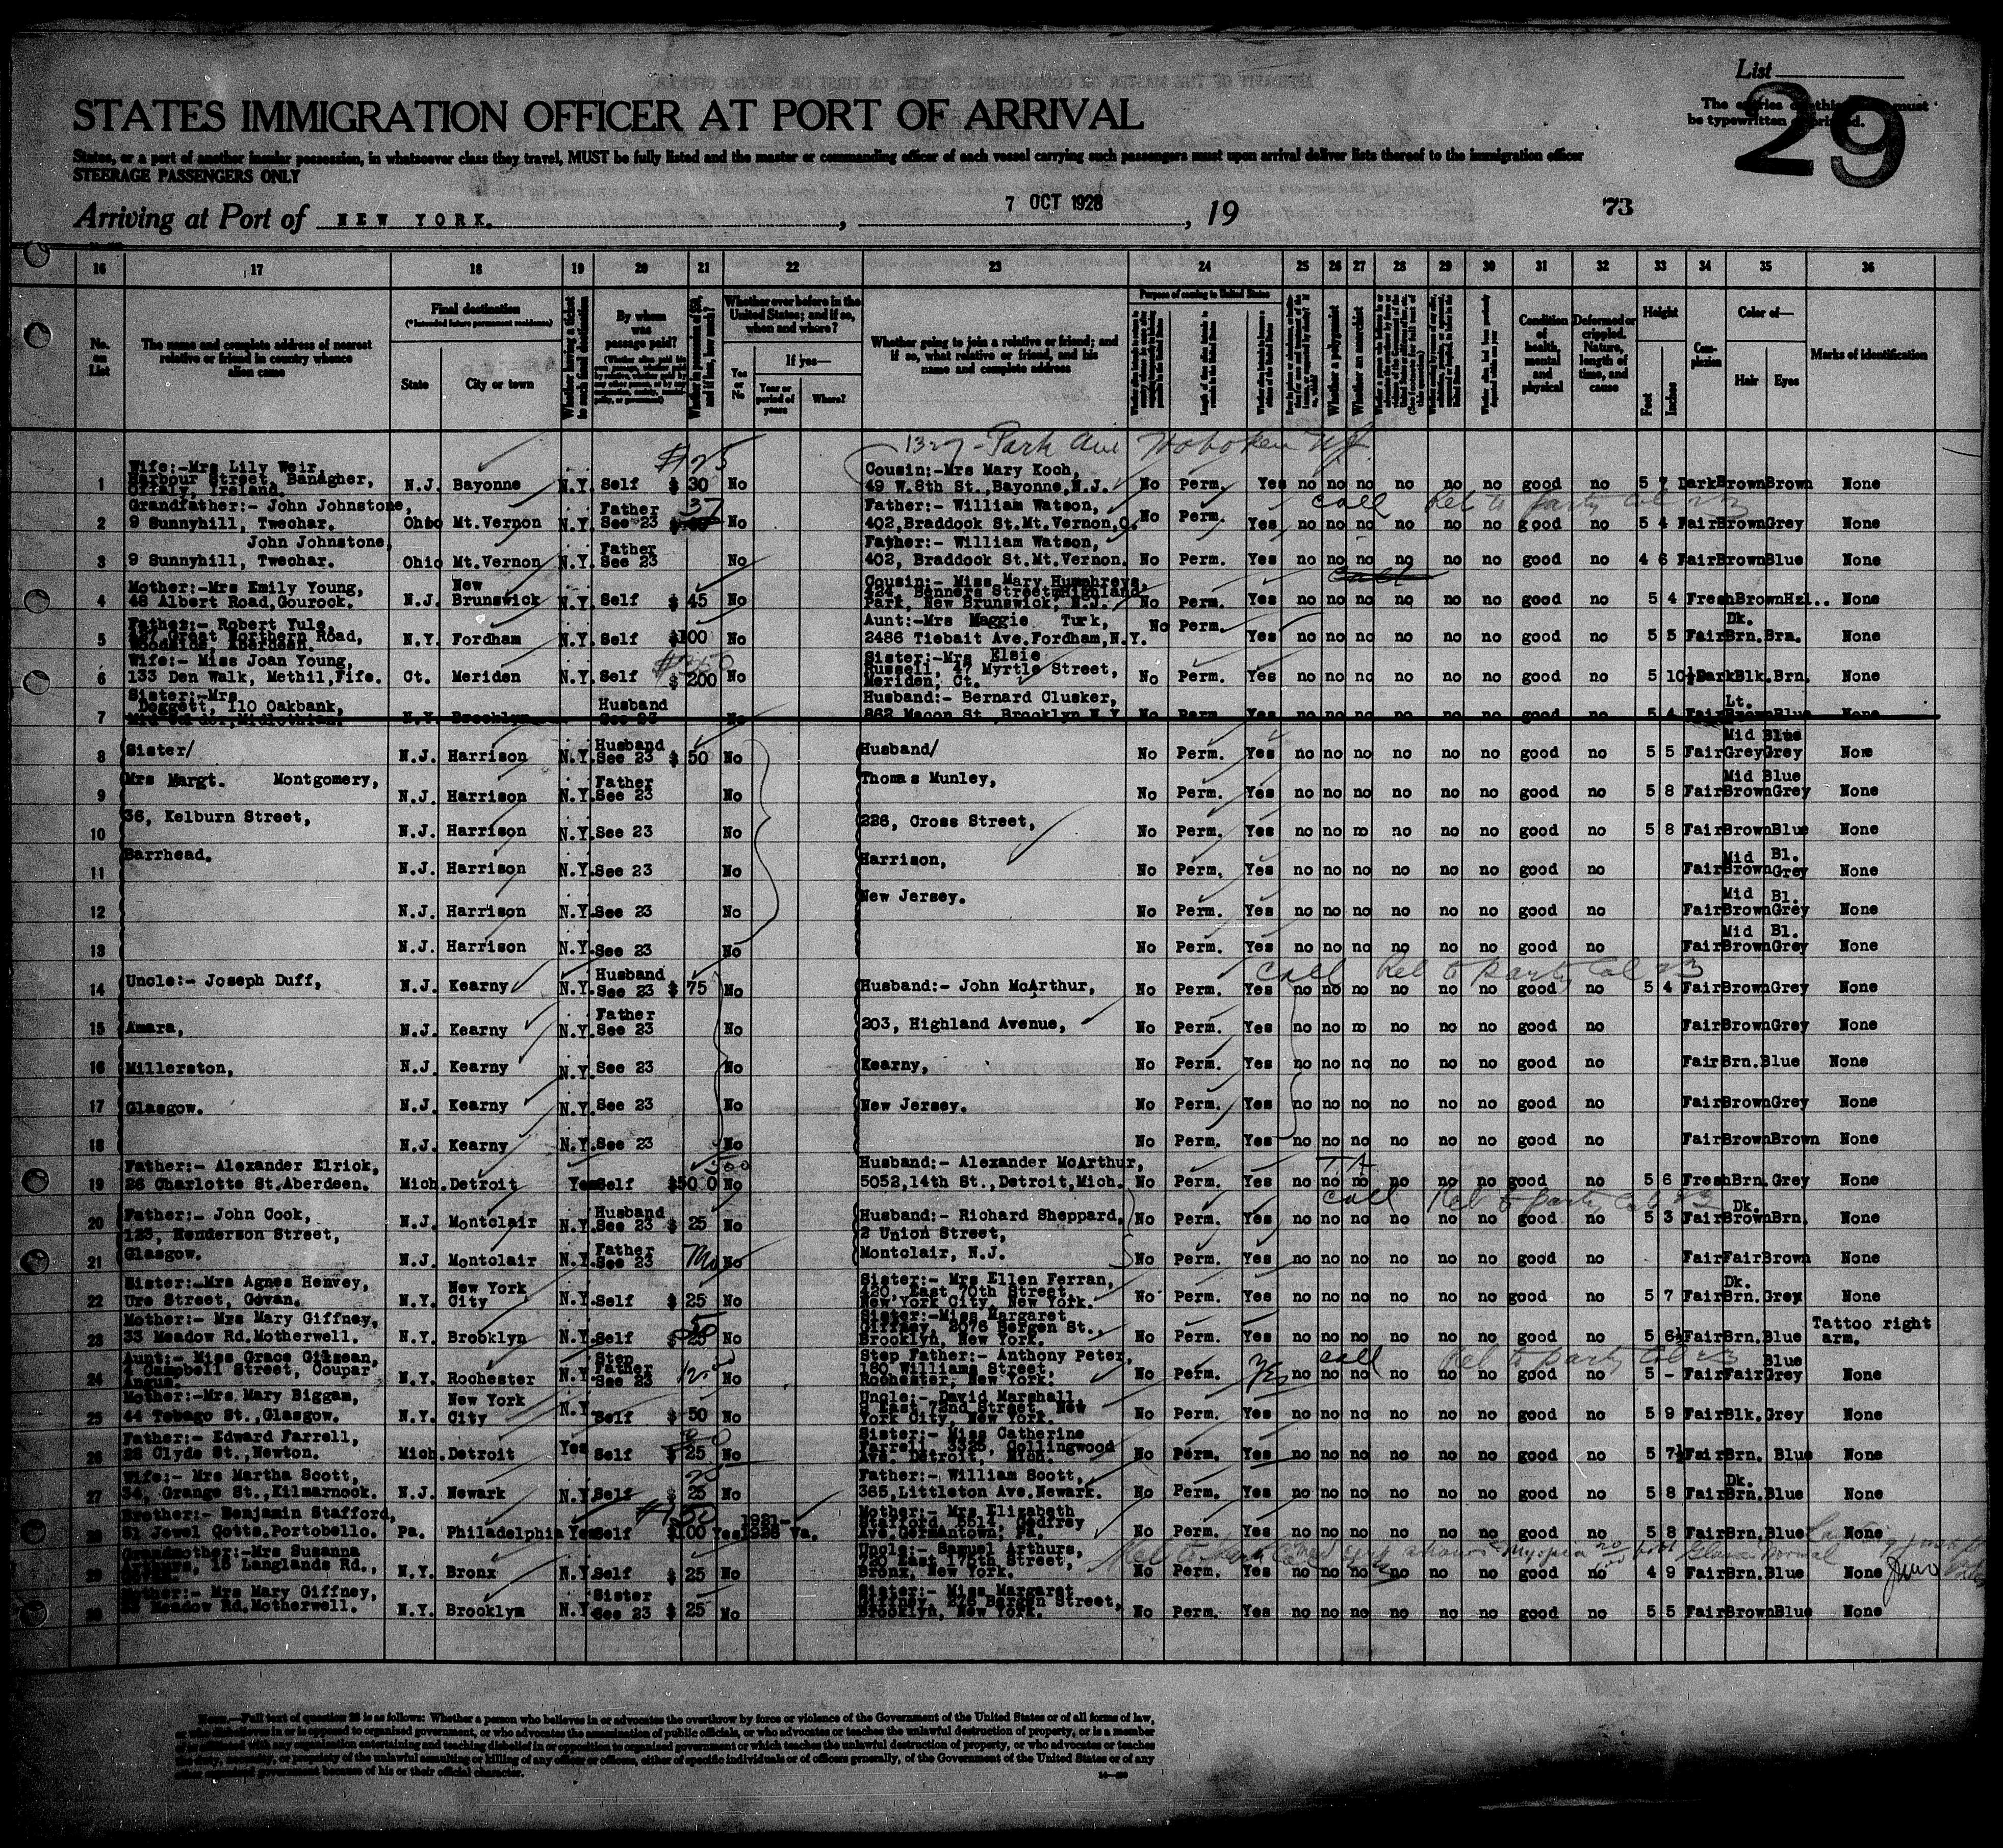 List
29
The entries on this must
be typewritten or printed.
STATES IMMIGRATION OFFICER AT PORT OF ARRIVAL
States, or a part of another insular possession, in whatsoever class they travel, MUST be fully listed and the master or commanding officer of each vessel carrying such passengers must upon arrival deliver lists thereof to the immigration officer
STEERAGE PASSENGERS ONLY
Arriving at Port of NEW YORK. , 7 OCT 1928 , 19
73
16 17 18 19 20 21 22 23 24 25 26 27 28 29 30 31 32 33 34 35 36
No. on List
The name and complete address of nearest relative or friend in country whence alien came
Final destination
(*Intended future permanent residence)
State
City or town
Whether having a ticket to such final destination
By whom was passage paid?
Whether ever before in the United States; and if so, when and where?
Yes or No
If yes—
Year or period of years
Where?
Whether going to join a relative or friend; and if so, what relative or friend, and his name and complete address
Purpose of coming to United States
Whether a polygamist
Whether an anarchist
Condition of health, mental and physical
Deformed or crippled. Nature, length of time, and cause
Height
Feet
Inches
Complexion
Color of—
Hair
Eyes
Marks of identification
1327 - Park Ave Hoboken NJ
$25
1 Wife:-Mrs Lily Weir, Harbour Street, Banagher, Offaly, Ireland. N.J. Bayonne N.Y. Self $ 30 No Cousin:-Mrs Mary Koch, 49 W.8th St., Bayonne, N.J. No Perm. Yes no no no no no no good no 5 7 Dark Brown Brown None
call Rel to party Col 23
2 Grandfather:- John Johnstone, 9 Sunnyhill, Twechar. Ohio Mt.Vernon N.Y. Father See 23 37 No Father:- William Watson, 402,Braddock St.Mt.Vernon,O. No Perm. Yes no no no no no no good no 5 4 Fair Brown Grey None
3 John Johnstone, 9 Sunnyhill, Twechar. Ohio Mt.Vernon N.Y. Father See 23 No Father:- William Watson, 402, Braddock St.Mt.Vernon. No Perm. Yes no no no no no no good no 4 6 Fair Brown Blue None
call
4 Mother:-Mrs Emily Young, 48 Albert Road,Gourock. N.J. New Brunswick N.Y. Self $ 45 No Cousin:- Miss Mary Humphreys, 424, Benners Street,Highland Park, New Brunswick, N.J. No Perm. Yes no no no no no no good no 5 4 Fresh Brown Hzl.. None
5 Father:- Robert Yule, Great Northern Road, Woodside, Aberdeen. N.Y. Fordham N.Y. Self $100 No Aunt:-Mrs Maggie Turk, 2486 Tiebait Ave.Fordham,N.Y. No Perm. Yes no no no no no no good no 5 5 Fair Dk. Brn. Brn. None
6 Wife:- Miss Joan Young, 133 Den Walk, Methil,Fife. Ct. Meriden N.Y. Self $ 200 No Sister:-Mrs Elsie Russell, 47 Myrtle Street, Meriden, Ct. No Perm. Yes no no no no no no good no 5 10½ Dark Blk. Brn. None
7 Sister:-Mrs Doggett, 110 Oakbank, N.Y. Brooklyn Husband See 23 No Husband:- Bernard Clusker, 862 Macon St. Brooklyn N.Y. No Perm. Yes no no no no no no good no 5 4 Fair Lt. Brown Blue None
8 Sister/ N.J. Harrison N.Y. Husband See 23 $ 50 No Husband/ No Perm. Yes no no no no no no good no 5 5 Fair Mid Grey Blue Grey None
9 Mrs Margt. Montgomery, N.J. Harrison N.Y. Father See 23 No Thomas Munley, No Perm. Yes no no no no no no good no 5 8 Fair Mid Brown Blue Grey None
10 36, Kelburn Street, N.J. Harrison N.Y. See 23 No 226, Cross Street, No Perm. Yes no no no no no no good no 5 8 Fair Brown Blue None
11 Barrhead. N.J. Harrison N.Y. See 23 No Harrison, No Perm, Yes no no no no no no good no Fair Mid Brown Bl. Grey None
12 N.J. Harrison N.Y. See 23 No New Jersey. No Perm. Yes no no no no no no good no Fair Mid Brown Bl. Grey None
13 N.J. Harrison N.Y. See 23 No No Perm. Yes no no no no no no good no Fair Mid Brown Bl. Grey None
call Rel to party Col 23
14 Uncle:- Joseph Duff, N.J. Kearny N.Y. Husband See 23 $ 75 No Husband:- John McArthur, No Perm. Yes no no no no no no good no 5 4 Fair Brown Grey None
15 Amara, N.J. Kearny N.Y. Father See 23 No 203, Highland Avenue, No Perm. Yes no no no no no no good no Fair Brown Grey None
16 Millerston, N.J. Kearny N.Y. See 23 No Kearny, No Perm. Yes no no no no no no good no Fair Brn. Blue None
17 Glasgow. N.J. Kearny N.Y. See 23 No New Jersey. No Perm. Yes no no no no no no good no Fair Brown Grey None
18 N.J. Kearny N.Y. See 23 No No Perm. Yes no no no no no no good no Fair Brown Brown None
19 Father:- Alexander Elrick, 26 Charlotte St.Aberdeen. Mich. Detroit Yes Self $500 No Husband:- Alexander McArthur, 5052,14th St.,Detroit,Mich. No Perm. Yes no no no no no no good no 5 6 Fresh Brn. Grey None
call Rel to party Col 23
20 Father:- John Cook, 123, Henderson Street, N.J. Montclair N.Y. Husband See 23 $ 25 No Husband:- Richard Sheppard, 2 Union Street, No Perm. Yes no no no no no no good no 5 3 Fair Dk. Brown Brn. None
21 Glasgow. N.J. Montclair N.Y. Father See 23 No Montclair, N.J. No Perm. Yes no no no no no no good no Fair Fair Brown None
22 Sister:-Mrs Agnes Henvey, Ure Street, Govan. N.Y. New York City N.Y. Self $ 25 No Sister:- Mrs Ellen Ferran, 420, East 70th Street, New York City, New York. No Perm. Yes no no no no no no good no 5 7 Fair Dk. Brn. Grey None
23 Mother:- Mrs Mary Giffney, 33 Meadow Rd.Motherwell. N.Y. Brooklyn N.Y. Self $ 25 No Sister:-Miss Margaret Giffney, 2076 Bergen St., Brooklyn, New York. No Perm. Yes no no no no no no good no 5 6½ Fair Brn. Blue Tattoo right arm.
call Rel to party Col 23
24 Aunt:- Miss Grace Gilmean, 4 Campbell Street, Coupar Angus. N.Y. Rochester N.Y. Step Father See 23 No Step Father:- Anthony Peter, 180 Williams Street, Rochester, New York. No Perm. Yes no no no no no no good no 5 - Fair Fair Blue Grey None
25 Mother:-Mrs. Mary Biggam, 44 Tobago St.,Glasgow. N.Y. New York City N.Y. Self $ 50 No Uncle:- David Marshall, East 72nd Street, New York City, New York. No Perm. Yes no no no no no no good no 5 9 Fair Blk. Grey None
26 Father:- Edward Farrell, 28 Clyde St.,Newton. Mich. Detroit Yes Self $ 25 No Sister:- Miss Catherine Farrell, 3325, Collingwood Ave. Detroit, Mich. No Perm. Yes no no no no no no good no 5 7½ Fair Brn. Blue None
27 Wife:- Mrs Martha Scott, 34, Grange St.,Kilmarnock. N.J. Newark N.Y. Self $ 25 No Father:- William Scott, 365,Littleton Ave.Newark. No Perm. Yes no no no no no no good no 5 8 Fair Dk. Brn. Blue None
28 Brother:- Benjamin Stafford, 51 Jewel Cotts.Portobello. Pa. Philadelphia Yes Self $100 Yes 1921- 1928 Pa. Mother:- Mrs Elizabeth Stafford, 5514, Godfrey Ave.Germantown, Pa. No Perm. Yes no no no no no no good no 5 8 Fair Brn. Blue None
29 Grandmother:-Mrs Susanna 15 Langlands Rd., N.Y. Bronx N.Y. Self $ 25 No Uncle:- Samuel Arthurs, 720 East 175th Street, Bronx, New York. No Perm. Yes no no no no no no good no 4 9 Fair Brn. Blue None
30 Mother:- Mrs Mary Giffney, 33 Meadow Rd.Motherwell. N.Y. Brooklyn N.Y. Sister See 23 $ 25 No Sister:- Miss Margaret Giffney, 276 Bergen Street, Brooklyn, New York. No Perm. Yes no no no no no no good no 5 5 Fair Brown Blue None
Note.—Full text of question 28 is as follows: Whether a person who believes in or advocates the overthrow by force or violence of the Government of the United States or of all forms of law,
or who disbelieves in or is opposed to organized government, or who advocates the assassination of public officials, or who advocates or teaches the unlawful destruction of property, or is a member
of or affiliated with any organization entertaining and teaching disbelief in or opposition to organized government or which teaches the unlawful destruction of property, or who advocates or teaches
the duty, necessity, or propriety of the unlawful assaulting or killing of any officer or officers, either of specific individuals or of officers generally, of the Government of the United States or of any
other organized government because of his or their official character.